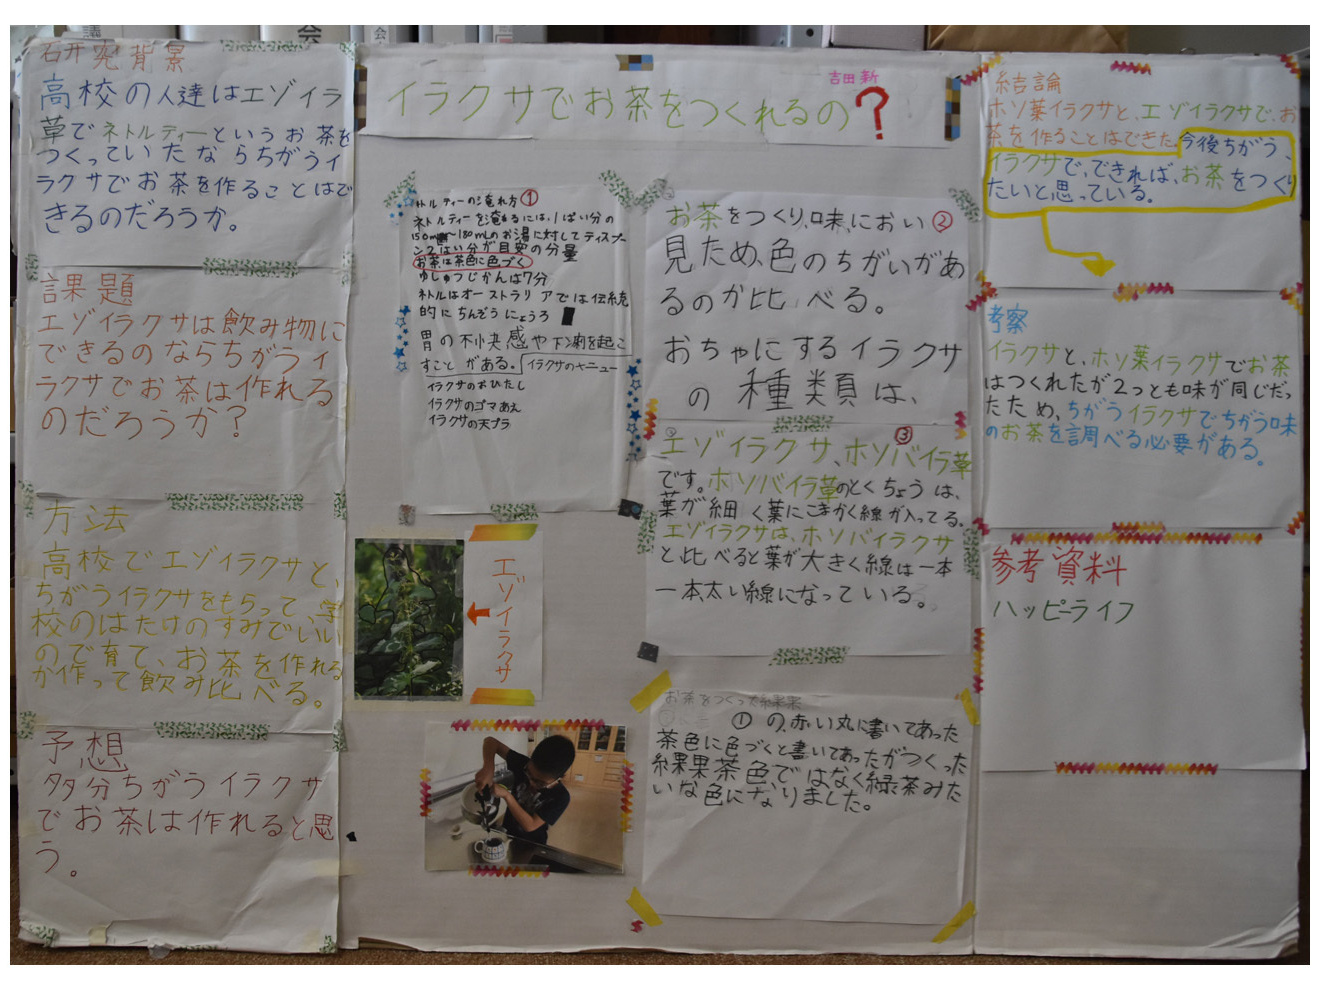 議
会
会
研究背景
高校の人達はエゾイラ
草でネトルティーというお茶を
つくっていたならちがうイ
ラクサでお茶を作ることはで
きるのだろうか。
課題
エゾイラクサは飲み物に
できるのならちがうイ
ラクサでお茶は作れる
のだろうか?
方法
高校でエゾイラクサと、
ちがうイラクサをもらって、学
校のはたけのすみでいい
ので育て、お茶を作れる
か作って飲み比べる。
予想
多分ちがうイラクサ
でお茶は作れると思
う。
吉田新
イラクサでお茶をつくれるの?
ネトルティーの淹れ方①
ネトルティーを淹れるには、1ぱい分の
150m~180mLのお湯に対してティスプー
ン2はい分が目安の分量
お茶は茶色に色づく
ゆしゅつじかんは7分
ネトルはオーストラリアでは伝統
的にちんぞうにょうろ
胃の不快感や下痢を起こ
すことがある。イラクサのメニュー
イラクサのおひたし
イラクサのゴマあえ
イラクサの天プラ
エゾイラクサ
お茶をつくり、味、におい②
見ため、色のちがいがあ
るのか比べる。
おちゃにするイラクサ
の種類は、
③
エゾイラクサ、ホソバイラ草
です。ホソバイラ草のとくちょうは、
葉が細く葉にこまかく線が入ってる。
エゾイラクサは、ホソバイラクサ
と比べると葉が大きく線は一本
一本太い線になっている。
お茶をつくった結果
①の赤い丸に書いてあった
茶色に色づくと書いてあったがつくった
結果茶色ではなく緑茶みた
いな色になりました。
結論
ホソ葉イラクサと、エゾイラクサで、お
茶を作ることはできた。今後ちがう、
イラクサで、できれば、お茶をつくり
たいと思っている。
考察
イラクサと、ホソ葉イラクサでお茶
はつくれたが2つとも味が同じだっ
たため、ちがうイラクサでちがう味
のお茶を調べる必要がある。
参考資料
ハッピーライフ